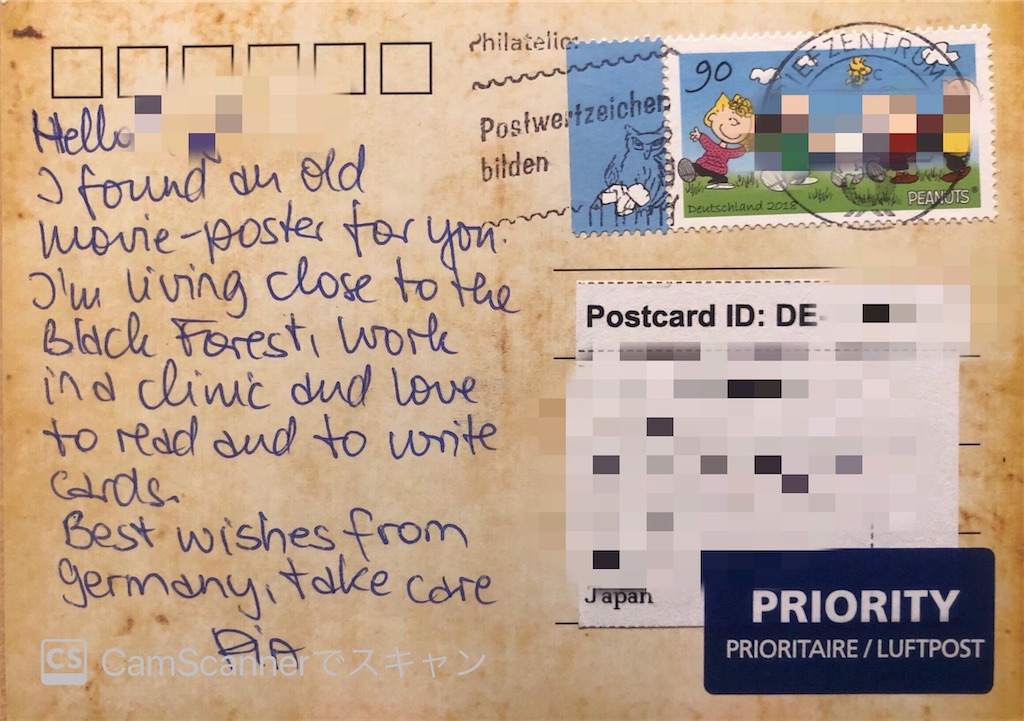 Philatelie
Postwertzeichen
bilden
90
IEZENTRUM
Deutschland 2018
PEANUTS
Hello
I found an old
movie-poster for you.
I'm living close to the
Black Forest, work
in a clinic and love
to read and to write
cards.
Best wishes from
Germany, take care
Postcard ID: DE
Japan
PRIORITY
PRIORITAIRE / LUFTPOST
CS CamScannerでスキャン